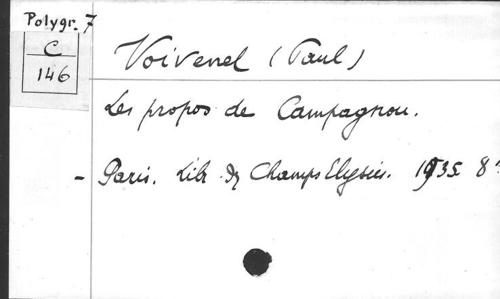 Polygr. 7
C
146
Voivenel (Paul)
Les propos de Campagnou.
- Paris. Libr. des Champs Elysées. 1935 8°